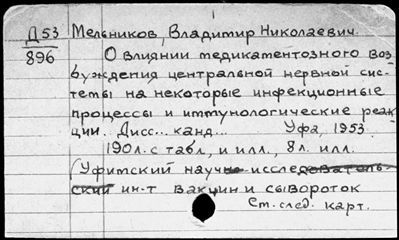 Д53 Мельников, Владимир Николаевич.
896 О влиянии медикаментозного воз-
буждения центральной нервной сис-
темы на некоторые инфекционные
процессы и иммунологические реак-
ции. Дисс... канд... Уфа, 1953.
190л. с табл, и илл., 8л. илл.
(Уфимский научно-исследователь-
ский ин-т вакцин и сывороток
См. след. карт.